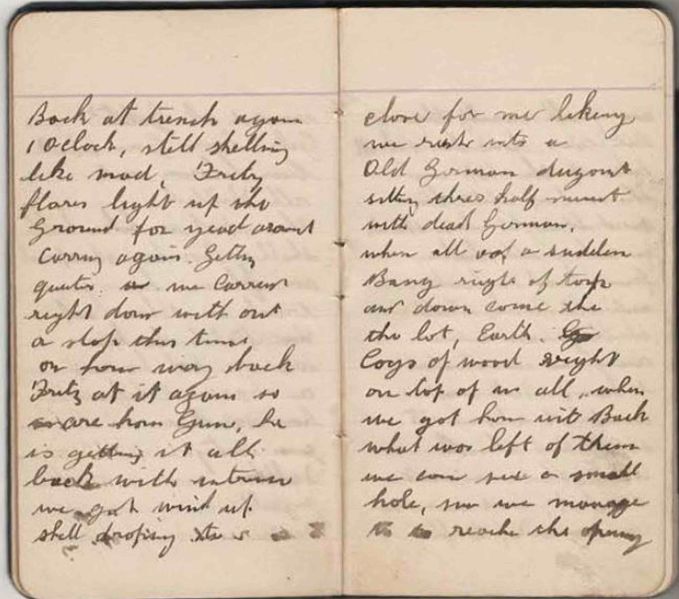 Back at trench again
1 Oclock, still shelling
like mad, Fritz
flares light up the
Ground for yead around
Carring again. Getting
quiter we Carrier
right down with out
a stop this time
on way back
Fritz at it again so
are Guns, he
is getting it all
back with intrus
we got wind up
shell droping
close for me likeing
we rush into a
Old German dugout
sitting three half
with dead German,
when all of a sudden
Bang right of top
and down come the
the lot, Earth.
Logs of wood right
on top of us all, when
we got Back
what was left of them
we can see a small
hole, we manage
to reache the opening